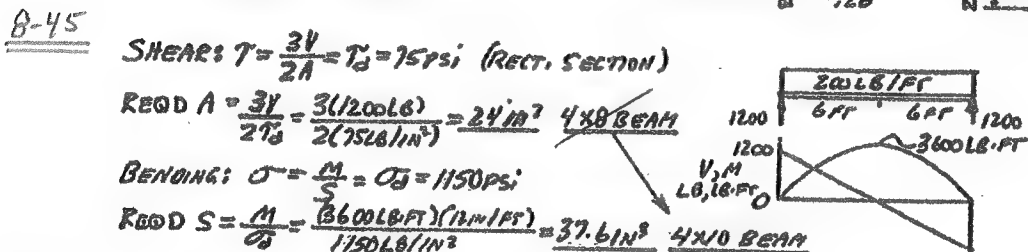 8-45
SHEAR: τ = 3V/2A = τd = 75 PSi (RECT. SECTION)
REQD A = 3V/2τd = 3(1200LB)/2(75LB/IN²) = 24 in² 4X8 BEAM
BENDING: σ = M/S = σd = 1150 PSi
REQD S = M/σd = (3600LB·FT)(12IN/FT)/1150LB/IN² = 37.6 IN³ 4X10 BEAM
200 LB/FT
6 FT 6 FT
1200 1200
1200 3600 LB·FT
V, M
LB, LB·FT 0